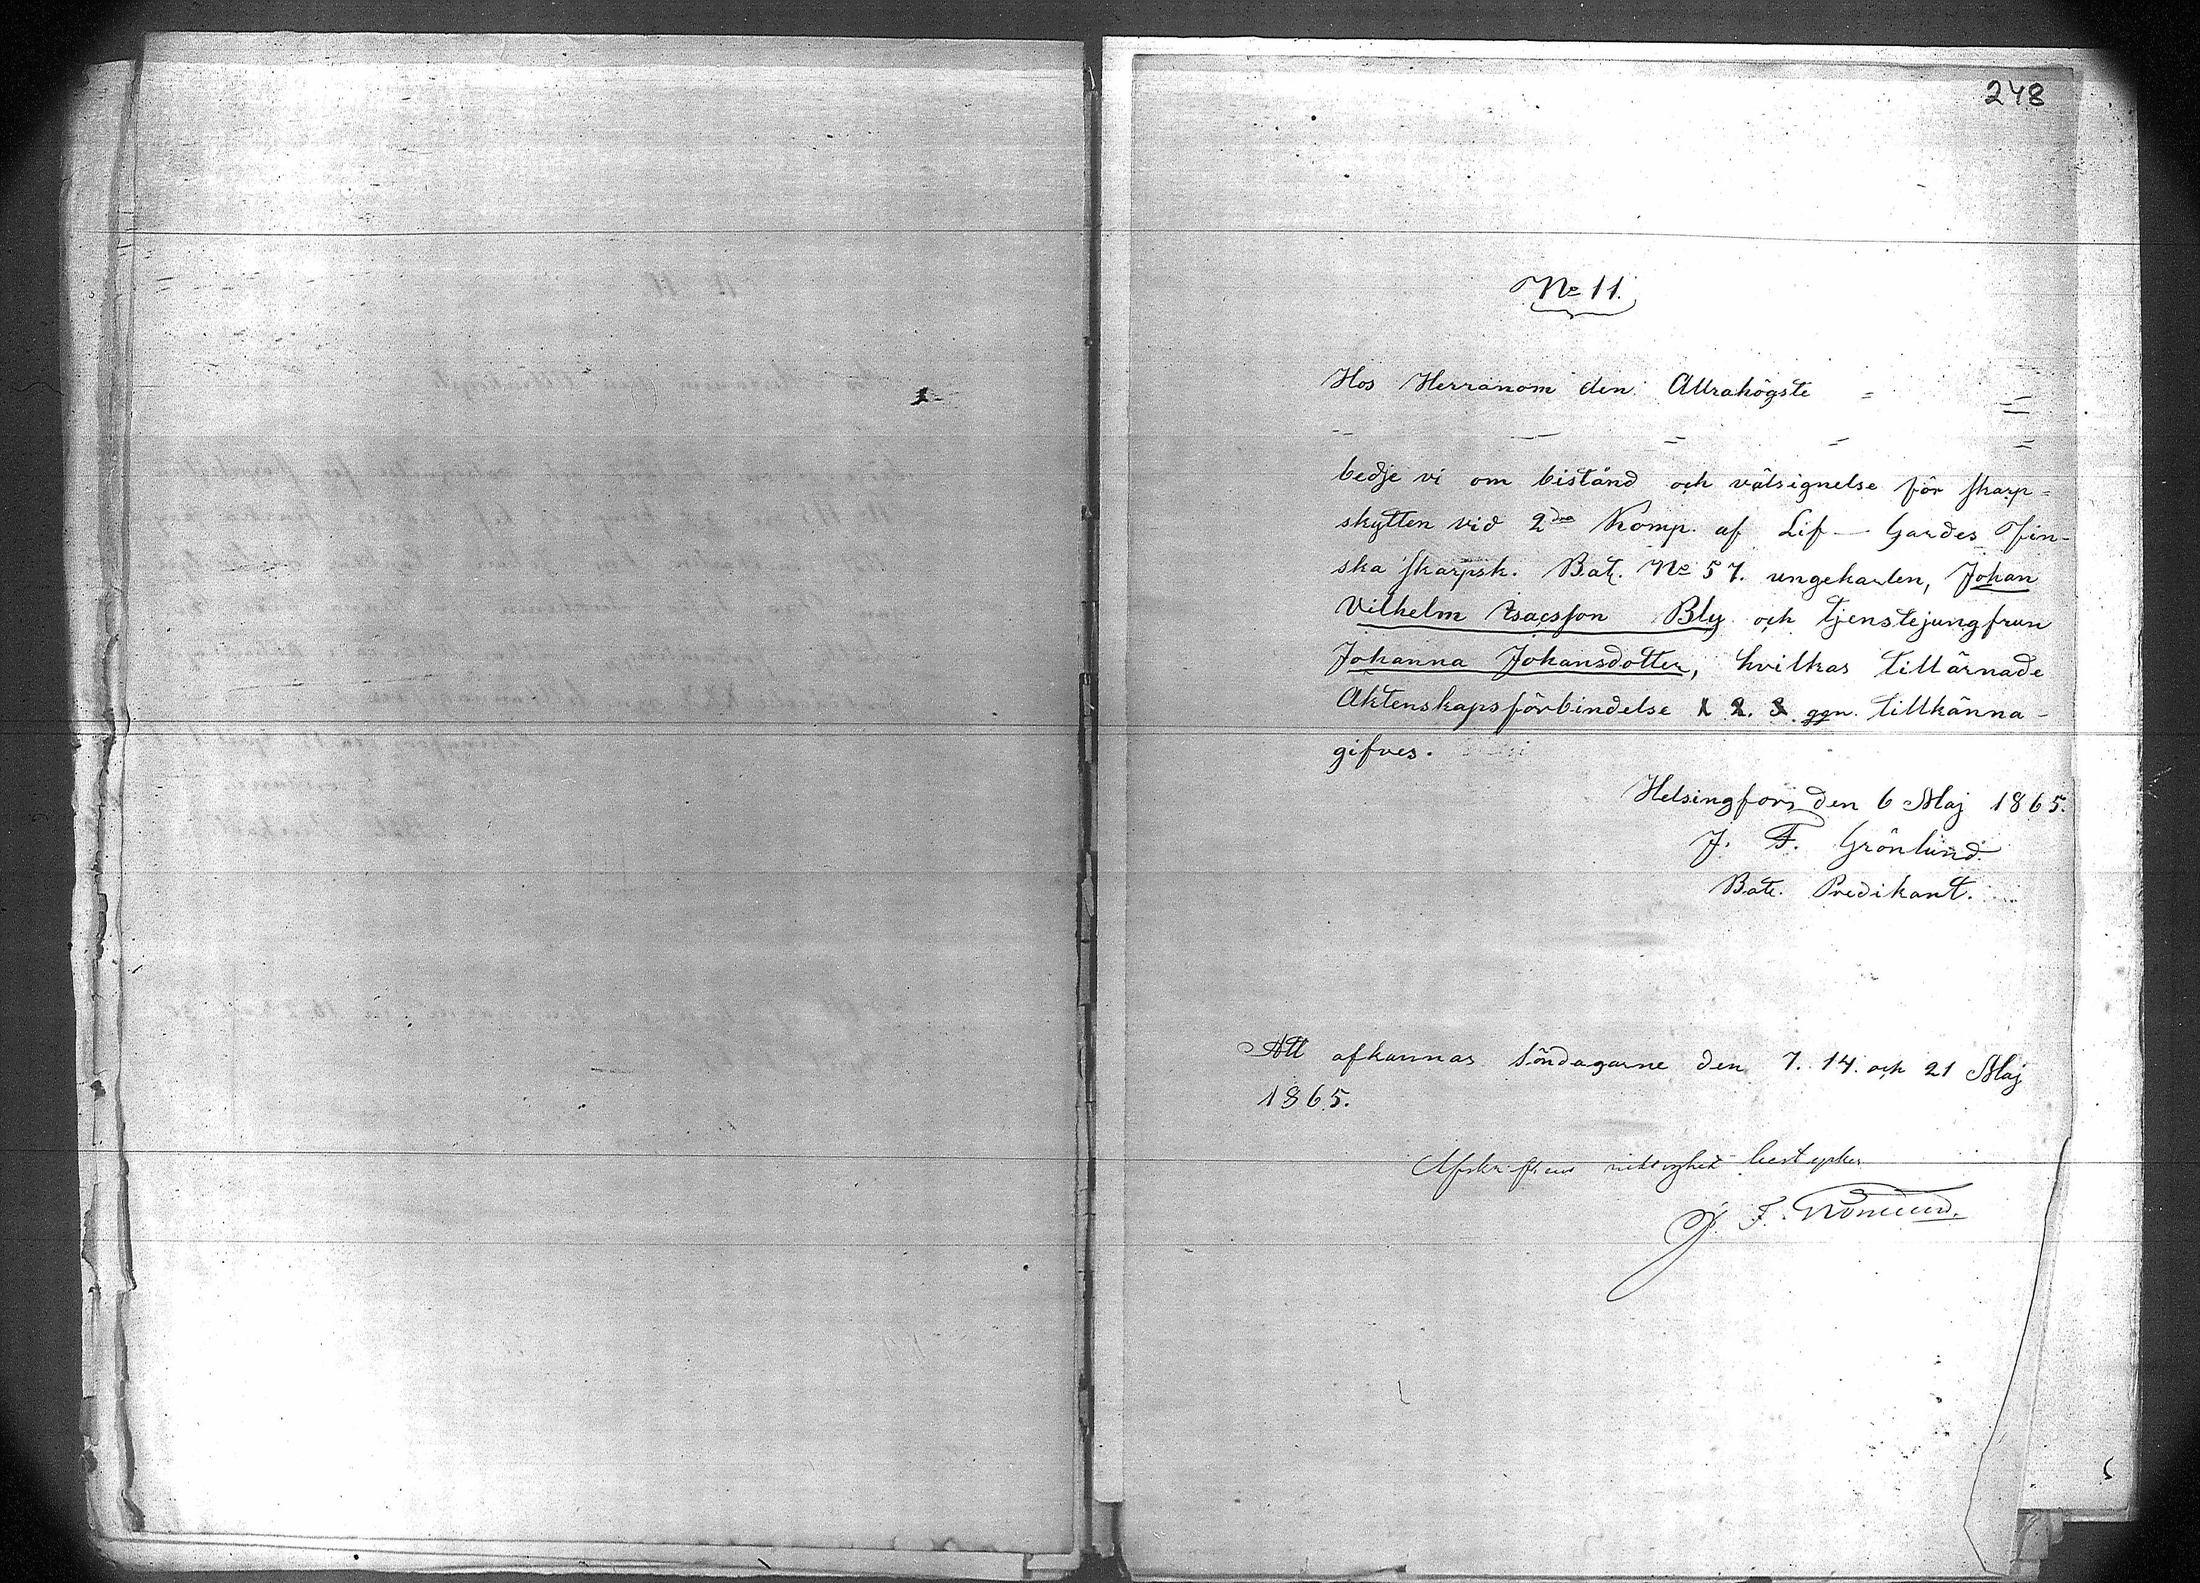 248
No 11.
Hos Herranom den Allrahögste = =
-- -- = = =
bedje vi om bistånd och välsignelse för skarp=
skytten vid 2dra Komp. af Lif- Gardes Fin-
ska skarpsk. Bat. No 57. ungekarlen, Johan
Vilhelm Isacsson Bly och tjenstejungfrun
Johanna Johansdotter, hvilkas tillärnade
Äktenskapsförbindelse 1 2. 3. ggn. tillkänna-
gifves.
Helsingfors den 6 Maj 1865.
J. F. Grönlund.
Bat. Predikant.
Att afkunnas Söndagarne den 7. 14. och 21 Maj
1865.
Afskriftens riktighet bestyrker
J. F. Grönlund.